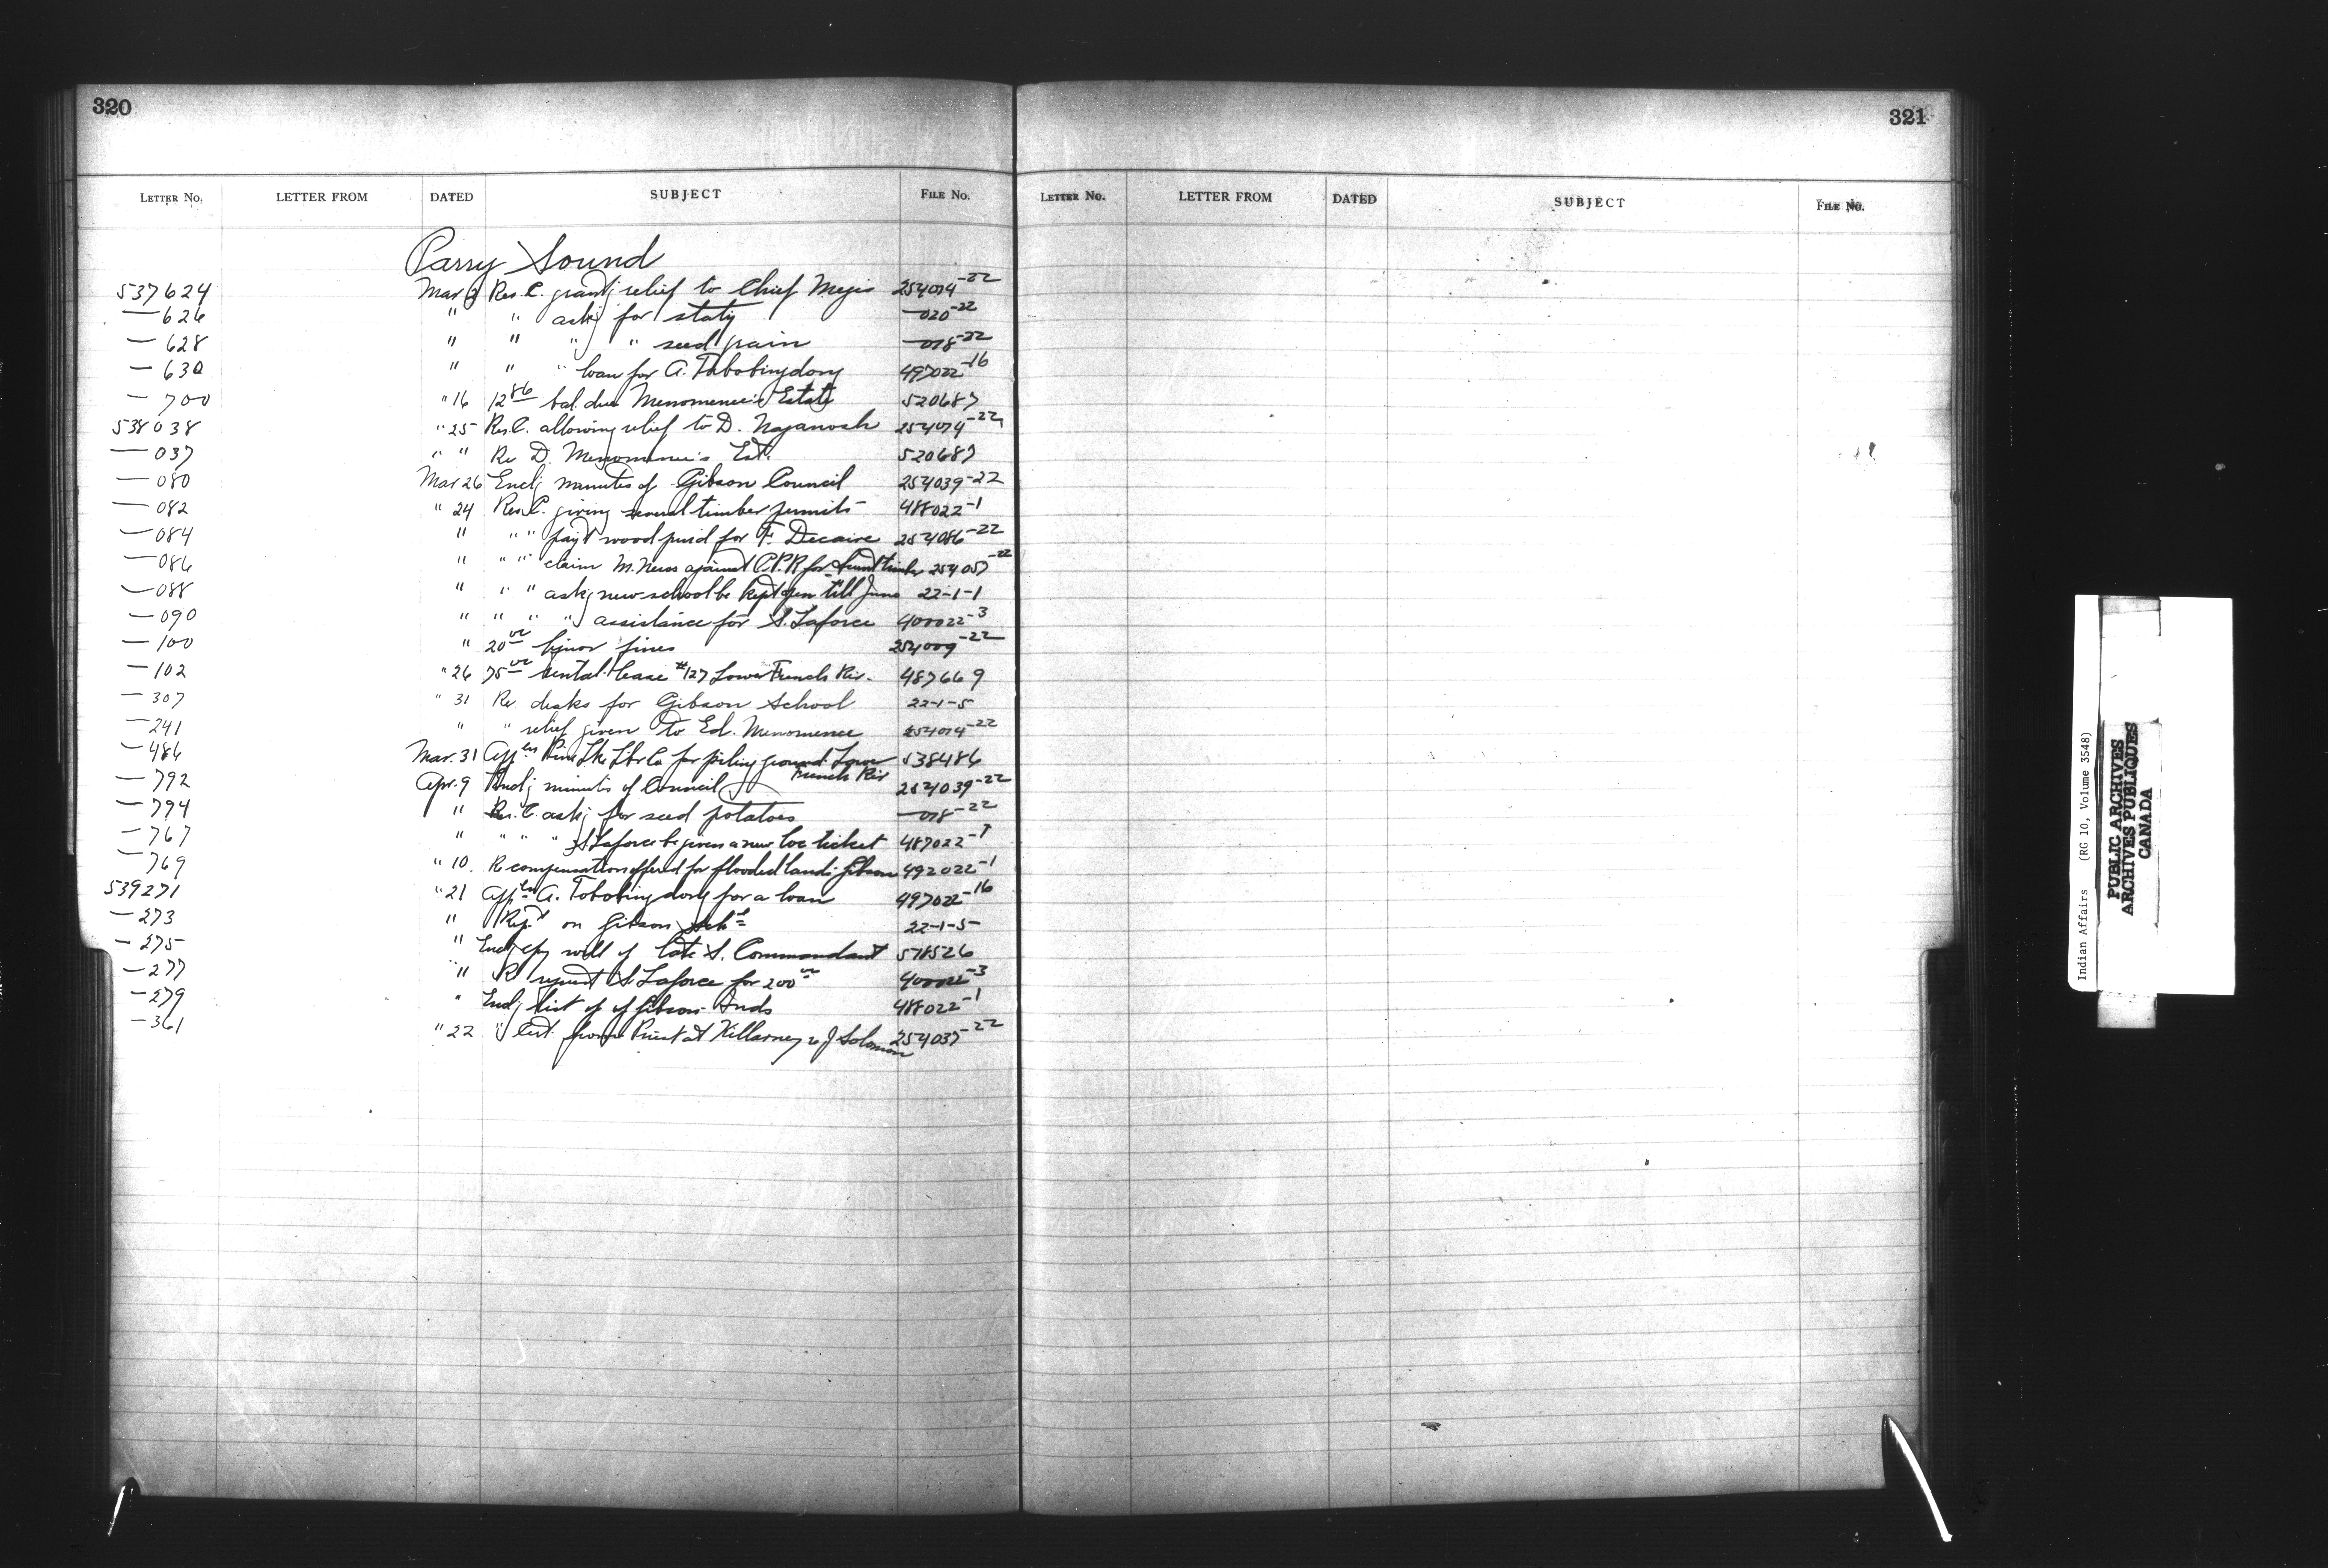 320
LETTER No. LETTER FROM DATED SUBJECT FILE No.
Parry Sound
537624 Mar 2 Res. C. grantg relief to Chief Megis 254014-22
— 626 " " askg for staty —020-22
— 628 " " " " seed grain —018-22
— 630 " " " loan for A. Tabobingdong 497022-16
— 700 " 16 12 86 bal. due Menomenee's Estate 520687
538038 " 25 Res. C. allowing relief to D. Naganosh 254014-22
— 037 " " Re D. Menomenee's Est. 520687
— 080 Mar 26 Enclg minutes of Gibson Council 254039-22
— 082 " 24 Res. C. giving several timber permits 488022-1
— 084 " " " payt wood purd for F. Decaire 254086-22
— 086 " " " claim M. Ness against C.P.R for timber 254057-22
— 088 " " " askg new school be kept open till June 22-1-1
— 090 " " " " assistance for S. Laforce 400022-3
— 100 " 20 00 liquor fines 254009-22
— 102 " 26 75 00 rental lease #127 Lower French Riv. 487669
— 307 " 31 Re desks for Gibson School 22-1-5
— 241 " " relief given to Ed. Menomenee 254014-22
— 486 Mar. 31 Appln Pine Lke Lbr Co for piling ground Lower French Riv 538486
— 792 Apr. 9 Enclg minutes of Council 254039-22
— 794 " Res. C. askg for seed potatoes —018-22
— 767 " " " " S Laforce be given a new loc ticket 487022-1
— 769 " 10. Re compensation offered for flooded lands Gibson 492022-1
539271 " 21 Appln A. Tobobingdong for a loan 497022-16
— 273 " Rept on Gibson Schl 22-1-5
— 275 " Enclg cpy will of late S. Commandant 518526
— 277 " Re request S. Laforce for 200 00 400022-3
— 279 " Enclg list of of Gibson Inds 488022-1
— 361 " 22 " lett. from Priest at Killarney re J Solomon 254037-22
321
LETTER No. LETTER FROM DATED SUBJECT FILE No.
Indian Affairs (RG 10, Volume 3548)
PUBLIC ARCHIVES
ARCHIVES PUBLIQUES
CANADA